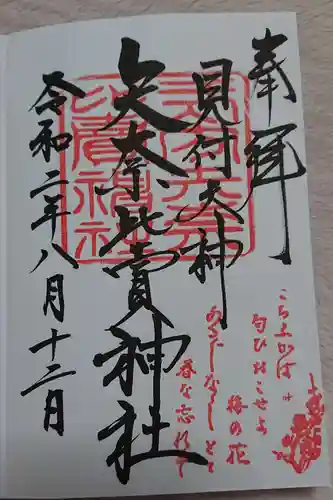 奉拝
見付天神
矢奈比賣神社
令和二年八月十二日
こちふかば
匂ひおこせよ
梅の花
あるじなしとて
春な忘れそ